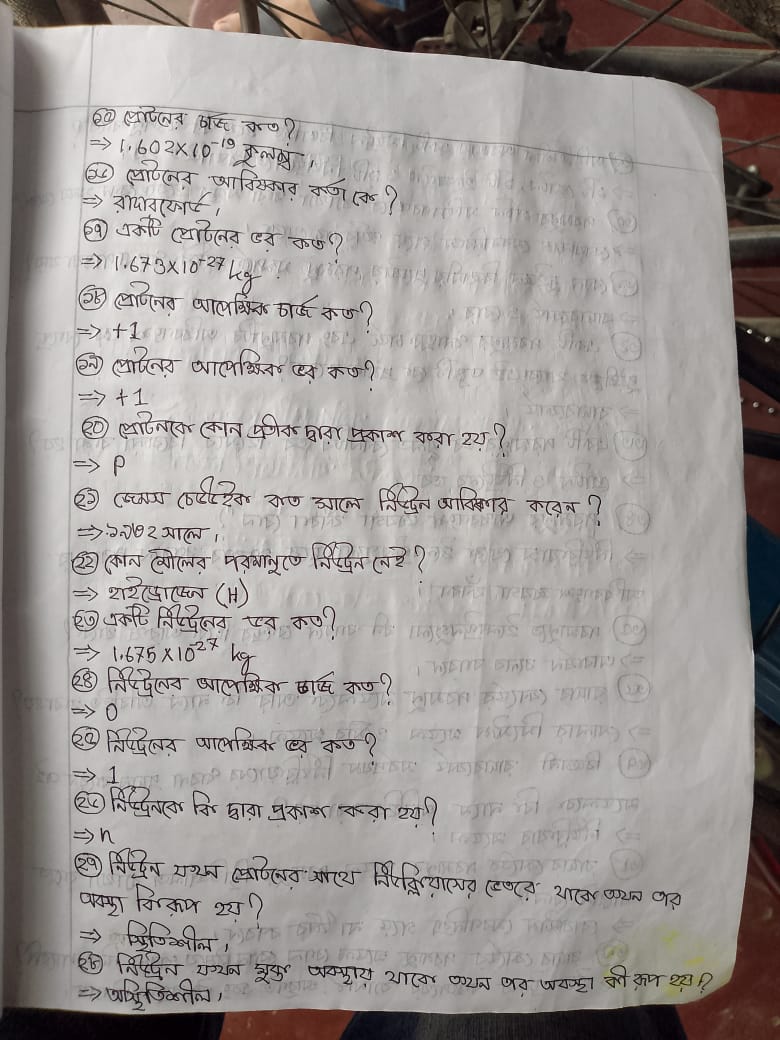 ১৫ প্রোটনের চার্জ কত?
⇒ 1.602×10⁻¹⁹ কুলম্ব।
১৬ প্রোটনের আবিষ্কার কর্তা কে?
⇒ রাদারফোর্ড।
১৭ একটি প্রোটনের ভর কত?
⇒ 1.673×10⁻²⁷ kg
১৮ প্রোটনের আপেক্ষিক চার্জ কত?
⇒ +1
১৯ প্রোটনের আপেক্ষিক ভর কত?
⇒ +1
২০ প্রোটনকে কোন প্রতীক দ্বারা প্রকাশ করা হয়?
⇒ P
২১ জেমস চেডউইক কত সালে নিউট্রন আবিষ্কার করেন?
⇒ ১৯৩২ সালে।
২২ কোন মৌলের পরমানুতে নিউট্রন নেই?
⇒ হাইড্রোজেন (H)
২৩ একটি নিউট্রনের ভর কত?
⇒ 1.675×10⁻²⁷ kg
২৪ নিউট্রনের আপেক্ষিক চার্জ কত?
⇒ 0
২৫ নিউট্রনের আপেক্ষিক ভর কত?
⇒ 1
২৬ নিউট্রনকে কি দ্বারা প্রকাশ করা হয়?
⇒ n
২৭ নিউট্রন যখন প্রোটনের সাথে নিউক্লিয়াসের ভেতরে থাকে তখন তার
অবস্থা কিরূপ হয়?
⇒ স্থিতিশীল।
২৮ নিউট্রন যখন মুক্ত অবস্থায় থাকে তখন তার অবস্থা কী রূপ হয়?
⇒ অস্থিতিশীল।